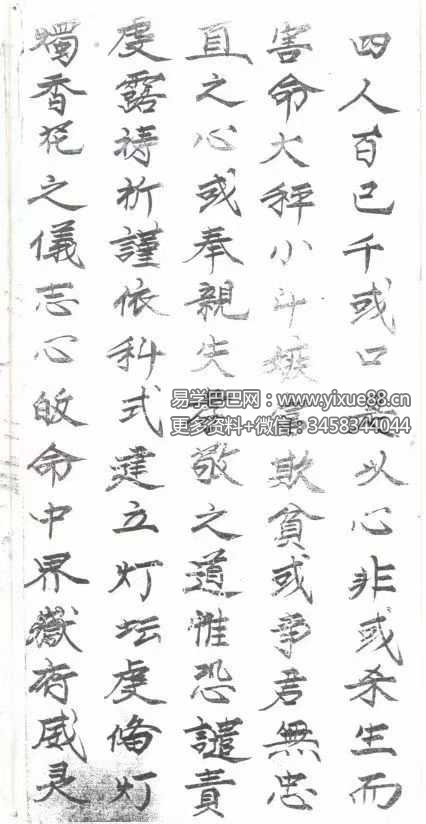 四人百己千或口是以心非或杀生而
害命大秤小斗嫉欺貧或事君無忠
直之心或奉親失敬之道惟恐譴責
虔露祷祈謹依科式建立灯坛虔俻灯
燭香花之儀志心皈命中界嶽府威灵
易学巴巴网：www.yixue88.cn
更多资料+微信：3458344044